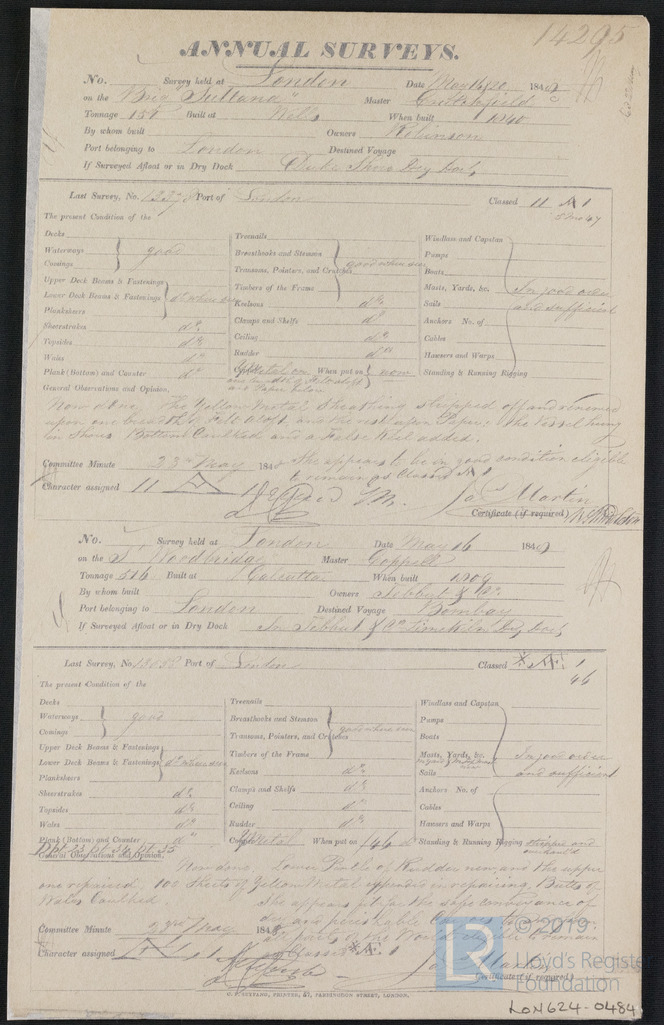 14295
ANNUAL SURVEYS.
No. Survey held at London Date May 16 & 20, 1849
on the Brig Sultana Master Critchfield
Tonnage Built at Wells When built 1840
By whom built Owners Robinson
Port belonging to London Destined Voyage
If Surveyed Afloat or in Dry Dock Duke Shore Dry Dock
Last Survey, No. Port of London Classed 11 A 1
The present Condition of the
Decks
Waterways good
Comings
Upper Deck Beams & Fastenings
Lower Deck Beams & Fastenings do where seen
Plansheers
Sheerstrakes do
Topsides do
Wales do
Plank (Bottom) and Counter do
Treenails
Breasthooks and Stemson good where seen
Transoms, Pointers, and Crutches
Timbers of the Frame
Keelsons do
Clamps and Shelfs do
Ceiling do
Rudder do
Copper Y Metal on When put on now
one breadth of Felt aloft
and Paper below
Windlass and Capstan
Pumps
Boats
Masts, Yards, &c. In good order
Sails and sufficient
Anchors No. of
Cables
Hawsers and Warps
Standing & Running Rigging
General Observations and Opinion.
Now done. The Yellow Metal Sheathing stripped off and renewed
upon one breadth of Felt aloft and the rest upon Paper: the Vessel being
in Shoars Bottom Caulked and a False Keel added.
Committee Minute 23rd May 1849 She appears to be in good condition eligible
to remain as Classed A 1
Character assigned 11 A 1 Jas Martin
Certificate (if required)
No. Survey held at London Date May 16 1849
on the S Woodbridge Master Coppell
Tonnage 516 Built at Calcutta When built 1809
By whom built Owners Tebbut & Co.
Port belonging to London Destined Voyage Bombay
If Surveyed Afloat or in Dry Dock In Tebbut & Co Limekiln Dry Dock
Last Survey, No. Port of London Classed *Æ 1
46
The present Condition of the
Decks
Waterways good
Comings
Upper Deck Beams & Fastenings
Lower Deck Beams & Fastenings do where seen
Plansheers
Sheerstrakes do
Topsides do
Wales do
Plank (Bottom) and Counter do
Treenails
Breasthooks and Stemson good where seen
Transoms, Pointers, and Crutches
Timbers of the Frame
Keelsons do
Clamps and Shelfs do
Ceiling do
Rudder do
Copper Y Metal When put on /46
Windlass and Capstan
Pumps
Boats
Masts, Yards, &c. In good order
Sails and sufficient
Anchors No. of
Cables
Hawsers and Warps
Standing & Running Rigging stripped and
General Observations and Opinion.
Now done, Lower Pintle of Rudder new, and the upper
one repaired. 100 Sheets of Yellow Metal expended in repairing, Butts of
Wales Caulked. She appears fit for the safe conveyance of
dry and perishable Cargoes to & from
all parts of the World eligible to remain
as Classed *Æ 1
Committee Minute 23rd May 1849
Character assigned Æ 1 Jas Martin
Certificate (if required)
© 2019
Lloyd's Register
Foundation
LR
LON624-0484